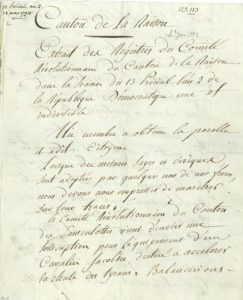 Canton de la Raison
Extrait des Registres du Comité
Révolutionnaire du Canton de la Raison
dans la séance du 13 Prairial l'an 2 de
la République Démocratique une et
indivisible
Un membre a obtenu la parolle
et a dit. Citoyens
Lorsque des mesures sages et civiques
sont adoptés par quelques uns de nos frères,
nous devons nous empresser de marcher
sur leurs traces.
le Comité Révolutionnaire du Canton
des Sansculottes vient d'ouvrir une
souscription pour l'équipement d'un
Cavalier Jacobin, destiné a accelerer
la chute des tyrans. Balancerions-